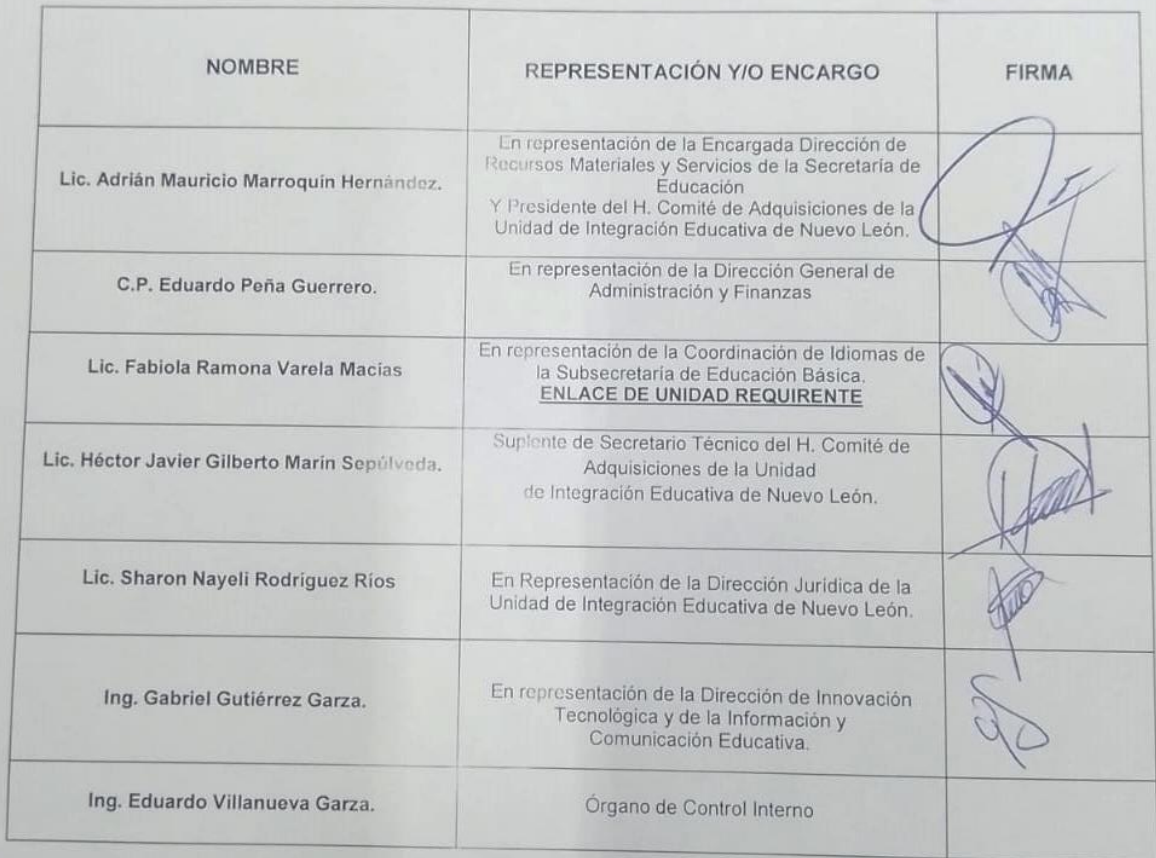 NOMBRE
REPRESENTACIÓN Y/O ENCARGO
FIRMA
Lic. Adrián Mauricio Marroquín Hernández.
En representación de la Encargada Dirección de
Recursos Materiales y Servicios de la Secretaría de
Educación
Y Presidente del H. Comité de Adquisiciones de la
Unidad de Integración Educativa de Nuevo León.
C.P. Eduardo Peña Guerrero.
En representación de la Dirección General de
Administración y Finanzas
Lic. Fabiola Ramona Varela Macías
En representación de la Coordinación de Idiomas de
la Subsecretaría de Educación Básica.
ENLACE DE UNIDAD REQUIRENTE
Lic. Héctor Javier Gilberto Marín Sepúlveda.
Suplente de Secretario Técnico del H. Comité de
Adquisiciones de la Unidad
de Integración Educativa de Nuevo León.
Lic. Sharon Nayeli Rodríguez Ríos
En Representación de la Dirección Jurídica de la
Unidad de Integración Educativa de Nuevo León.
Ing. Gabriel Gutiérrez Garza.
En representación de la Dirección de Innovación
Tecnológica y de la Información y
Comunicación Educativa.
Ing. Eduardo Villanueva Garza.
Órgano de Control Interno